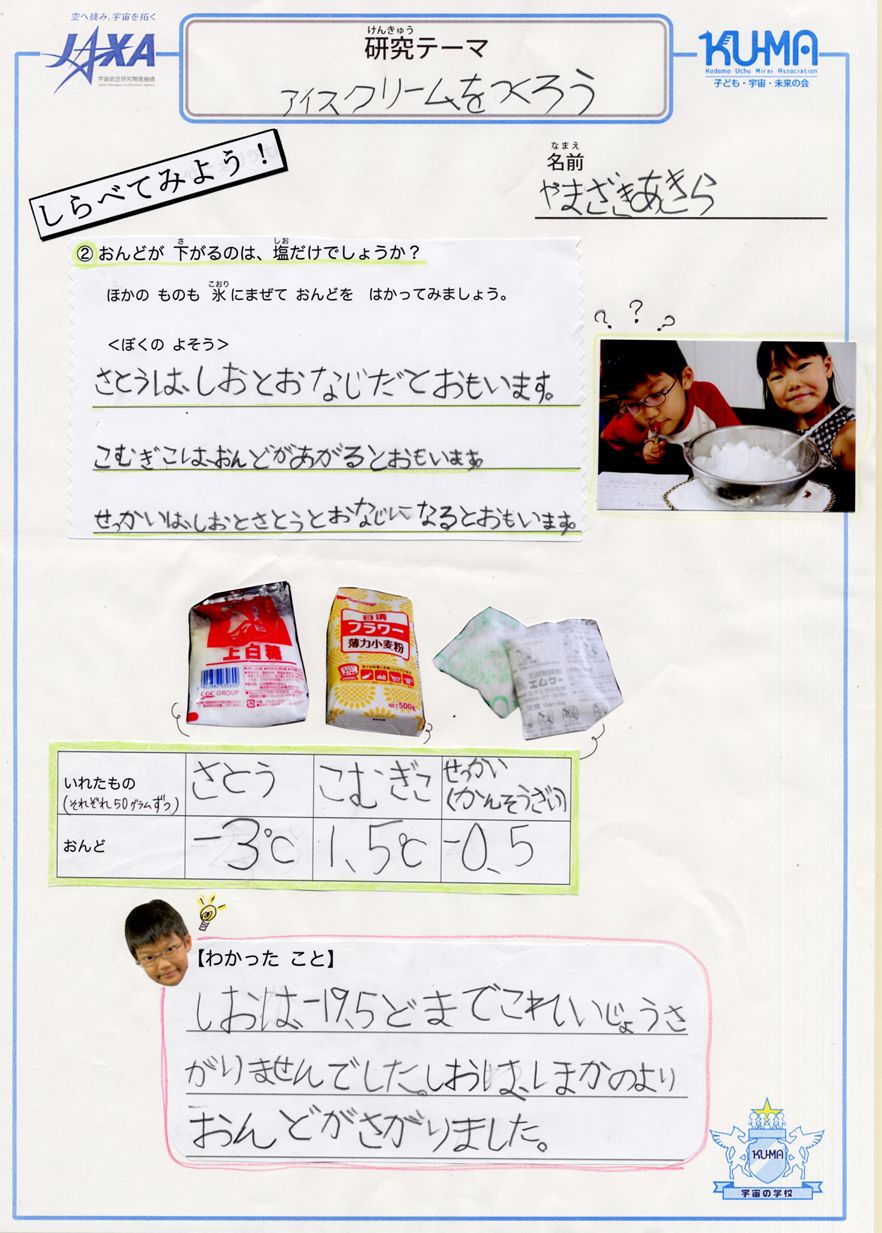 空へ挑み、宇宙を拓く
JAXA
宇宙航空研究開発機構
Japan Aerospace Exploration Agency
けんきゅう
研究テーマ
アイスクリームをつくろう
KU-MA
Kodomo Uchu Mirai Association
子ども・宇宙・未来の会
しらべてみよう！
なまえ
名前
やまざきあきら
② おんどが 下がるのは、塩だけでしょうか？
ほかの ものも 氷にまぜて おんどを はかってみましょう。
＜ぼくの よそう＞
さとうは、しおとおなじだとおもいます。
こむぎこは、おんどがあがるとおもいます。
せっかいは、しおとさとうとおなじになるとおもいます。
? ? ?
上白糖
CGC GROUP
日清
フラワー
薄力小麦粉
NET 500g
いれたもの
(それぞれ50グラムずつ)
さとう
こむぎこ
せっかい
(かんそうざい)
おんど
-3℃
1.5℃
-0.5
【わかった こと】
しおは、-19.5どまでこれいじょうさ
がりませんでした。しおは、ほかのより
おんどがさがりました。
KU-MA
宇宙の学校